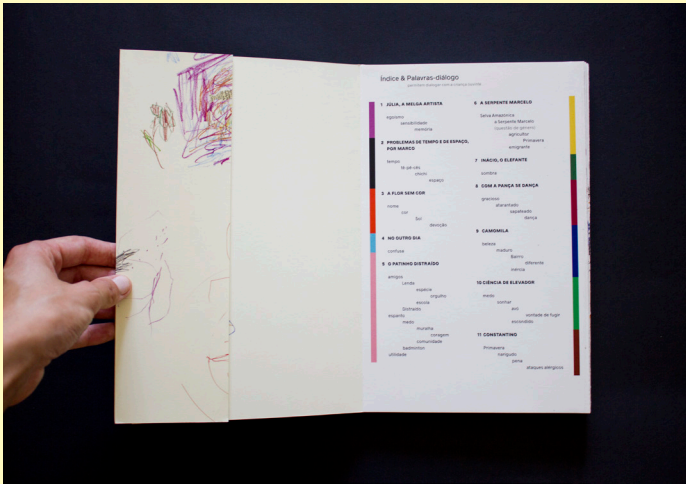 Índice & Palavras-diálogo
1 JÚLIA, A MELGA ARTISTA
egoísmo
sensibilidade
memória
2 PROBLEMAS DE TEMPO E DE ESPAÇO,
POR MARCO
tempo
chichi
espaço
3 A FLOR SEM COR
nome
cor
Sol
devoção
4 NO OUTRO DIA
confuse
5 O PATINHO DISTRAÍDO
amigos
Lenda
espécie
orgulho
escola
Distraído
espanto
medo
muralha
coragem
comunidade
badminton
utilidade
6 A SERPENTE MARCELO
Selva Amazónica
a Serpente Marcelo
(questão de género)
agricultor
Primavera
emigrante
7 INÁCIO, O ELEFANTE
sombra
8 COM A PANÇA SE DANÇA
gracioso
atarantado
sapateado
dança
9 CAMOMILA
beleza
maduro
Bairro
diferente
inércia
10 CIÊNCIA DE ELEVADOR
medo
sonhar
avó
vontade de fugir
escondido
11 CONSTANTINO
Primavera
narigudo
pena
ataques alérgicos